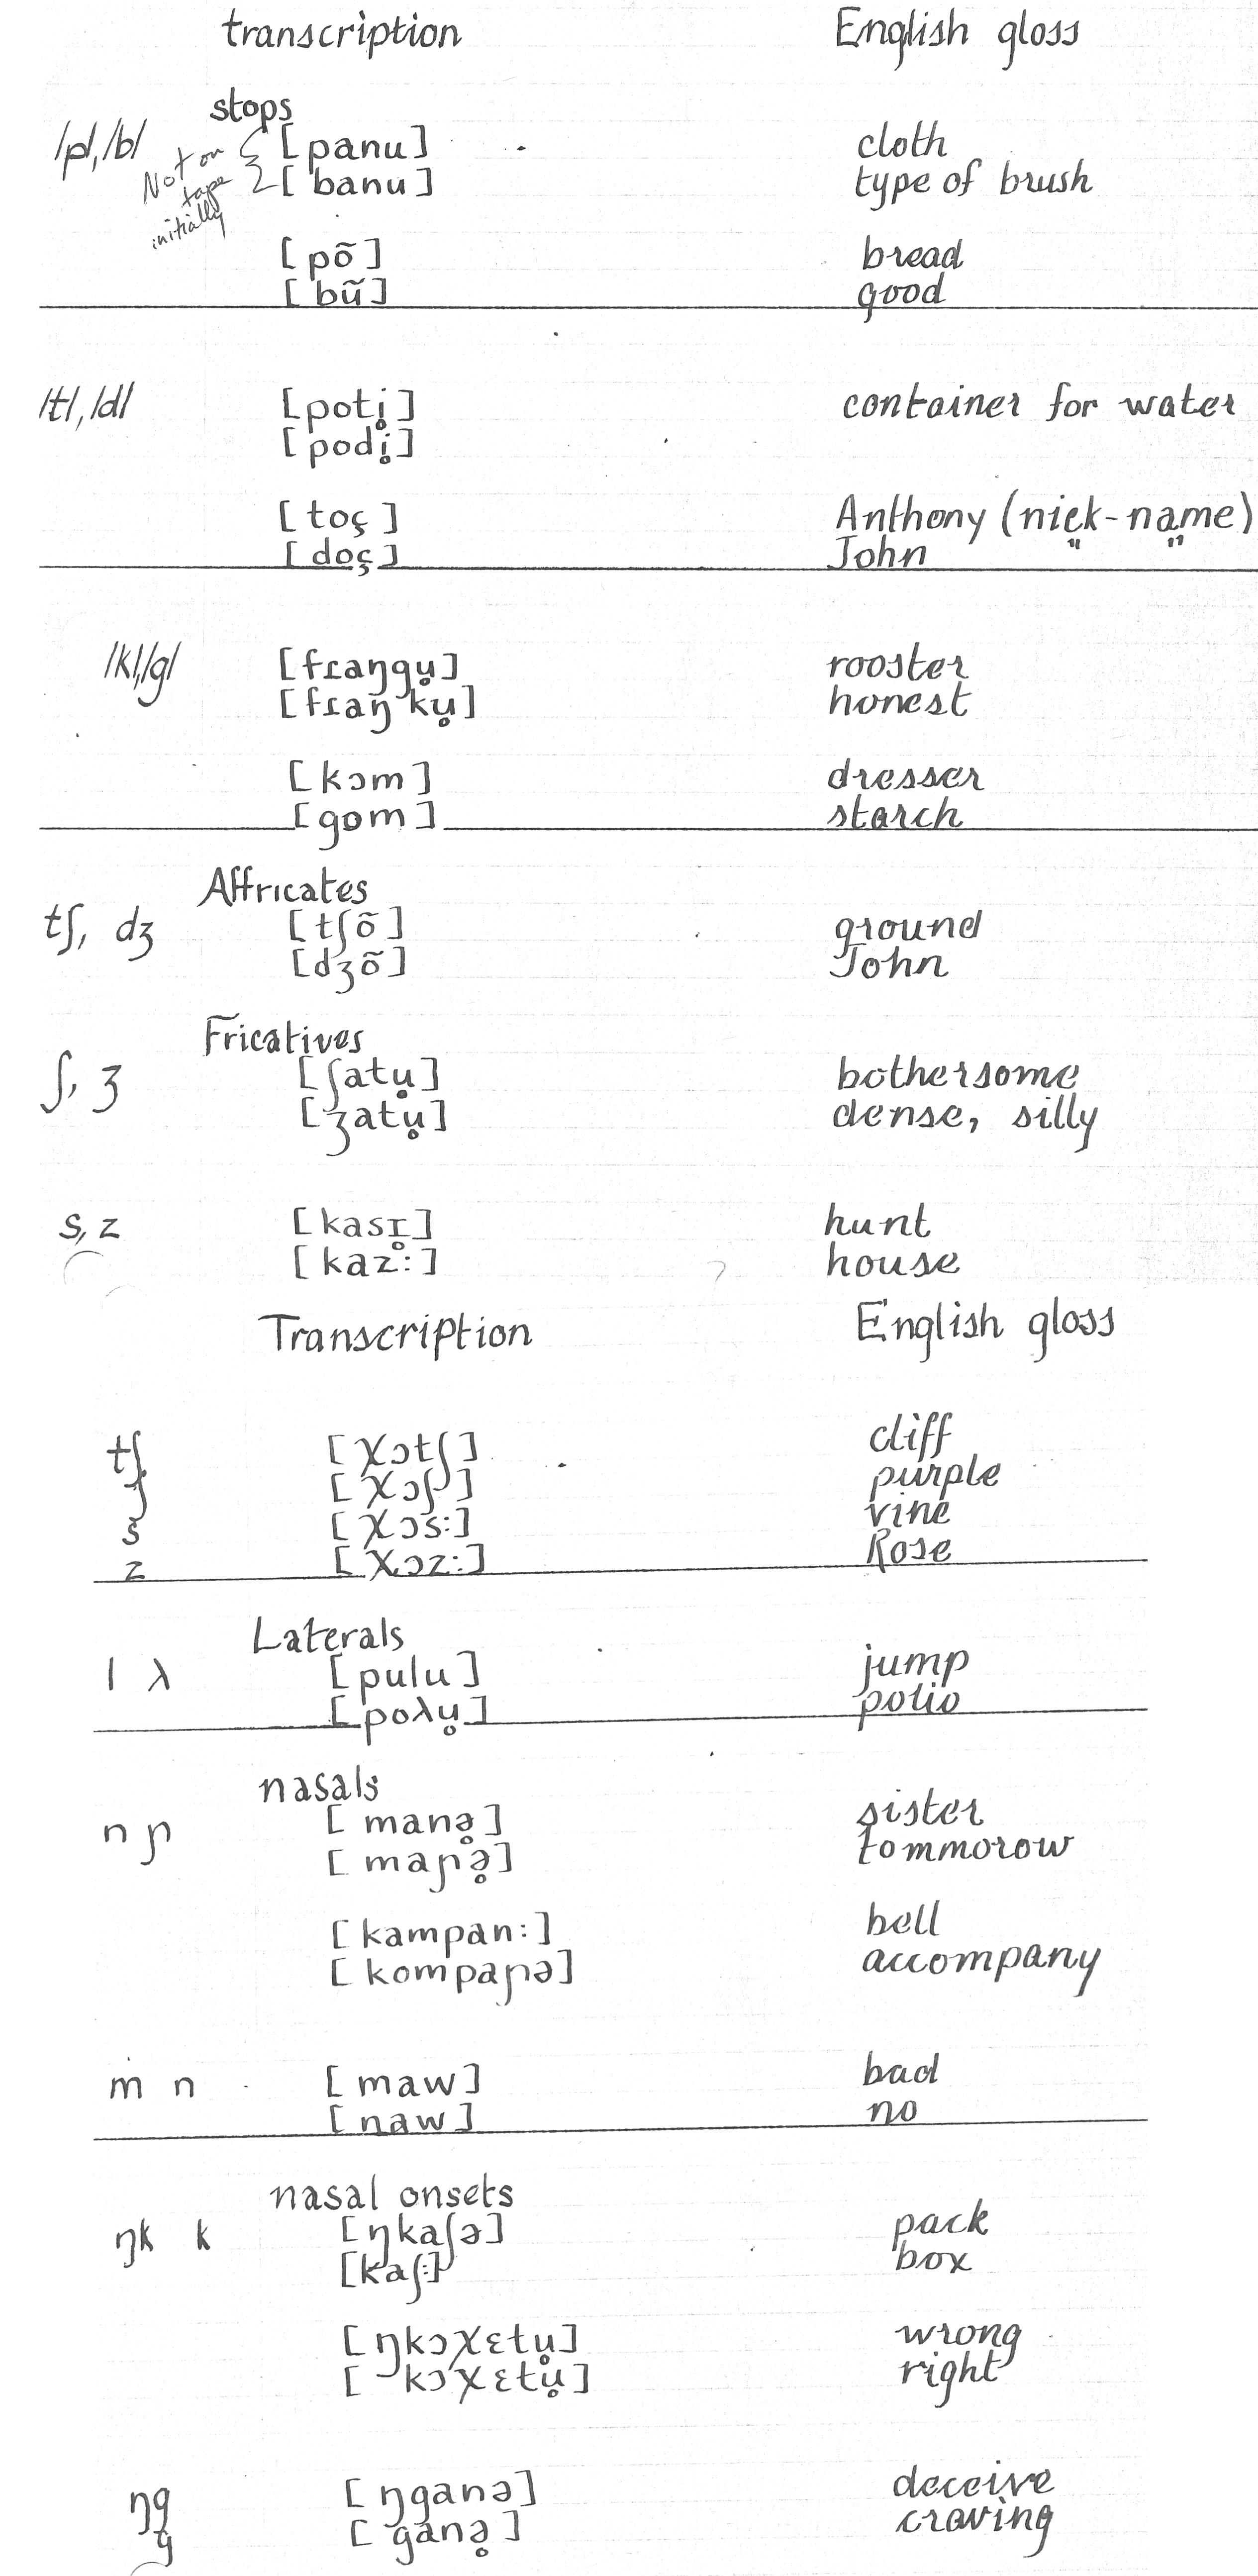 transcription English gloss
stops
/p/, /b/ [panu] cloth
Not on tape initially [banu] type of brush
[põ] bread
[bũ] good
/t/, /d/ [poti̥] container for water
[podi̥]
[toʂ] Anthony (nick-name)
[doʂ] John " "
/k/, /g/ [fɾaŋgu̥] rooster
[fɾaŋku̥] honest
[kɔm] dresser
[gom] starch
Affricates
tʃ, dʒ [tʃõ] ground
[dʒõ] John
Fricatives
ʃ, ʒ [ʃatu̥] bothersome
[ʒatu̥] dense, silly
s, z [kasɪ̥] hunt
[kaz:] house
Transcription English gloss
tʃ [χɔtʃ] cliff
ʃ [χɔʃ] purple
s [χɔs:] vine
z [χɔz:] Rose
Laterals
l λ [pulu] jump
[poλu̥] polio
nasals
n ɲ [manə̥] sister
[maɲə̥] tommorow
[kampan:] bell
[kompaɲə] accompany
m n [maw] bad
[naw] no
nasal onsets
ŋk k [ŋkaʃə] pack
[kaʃ:] box
[ŋkɔχɛtu̥] wrong
[kɔχɛtu̥] right
ŋg [ŋganə] deceive
g [ganə̥] craving